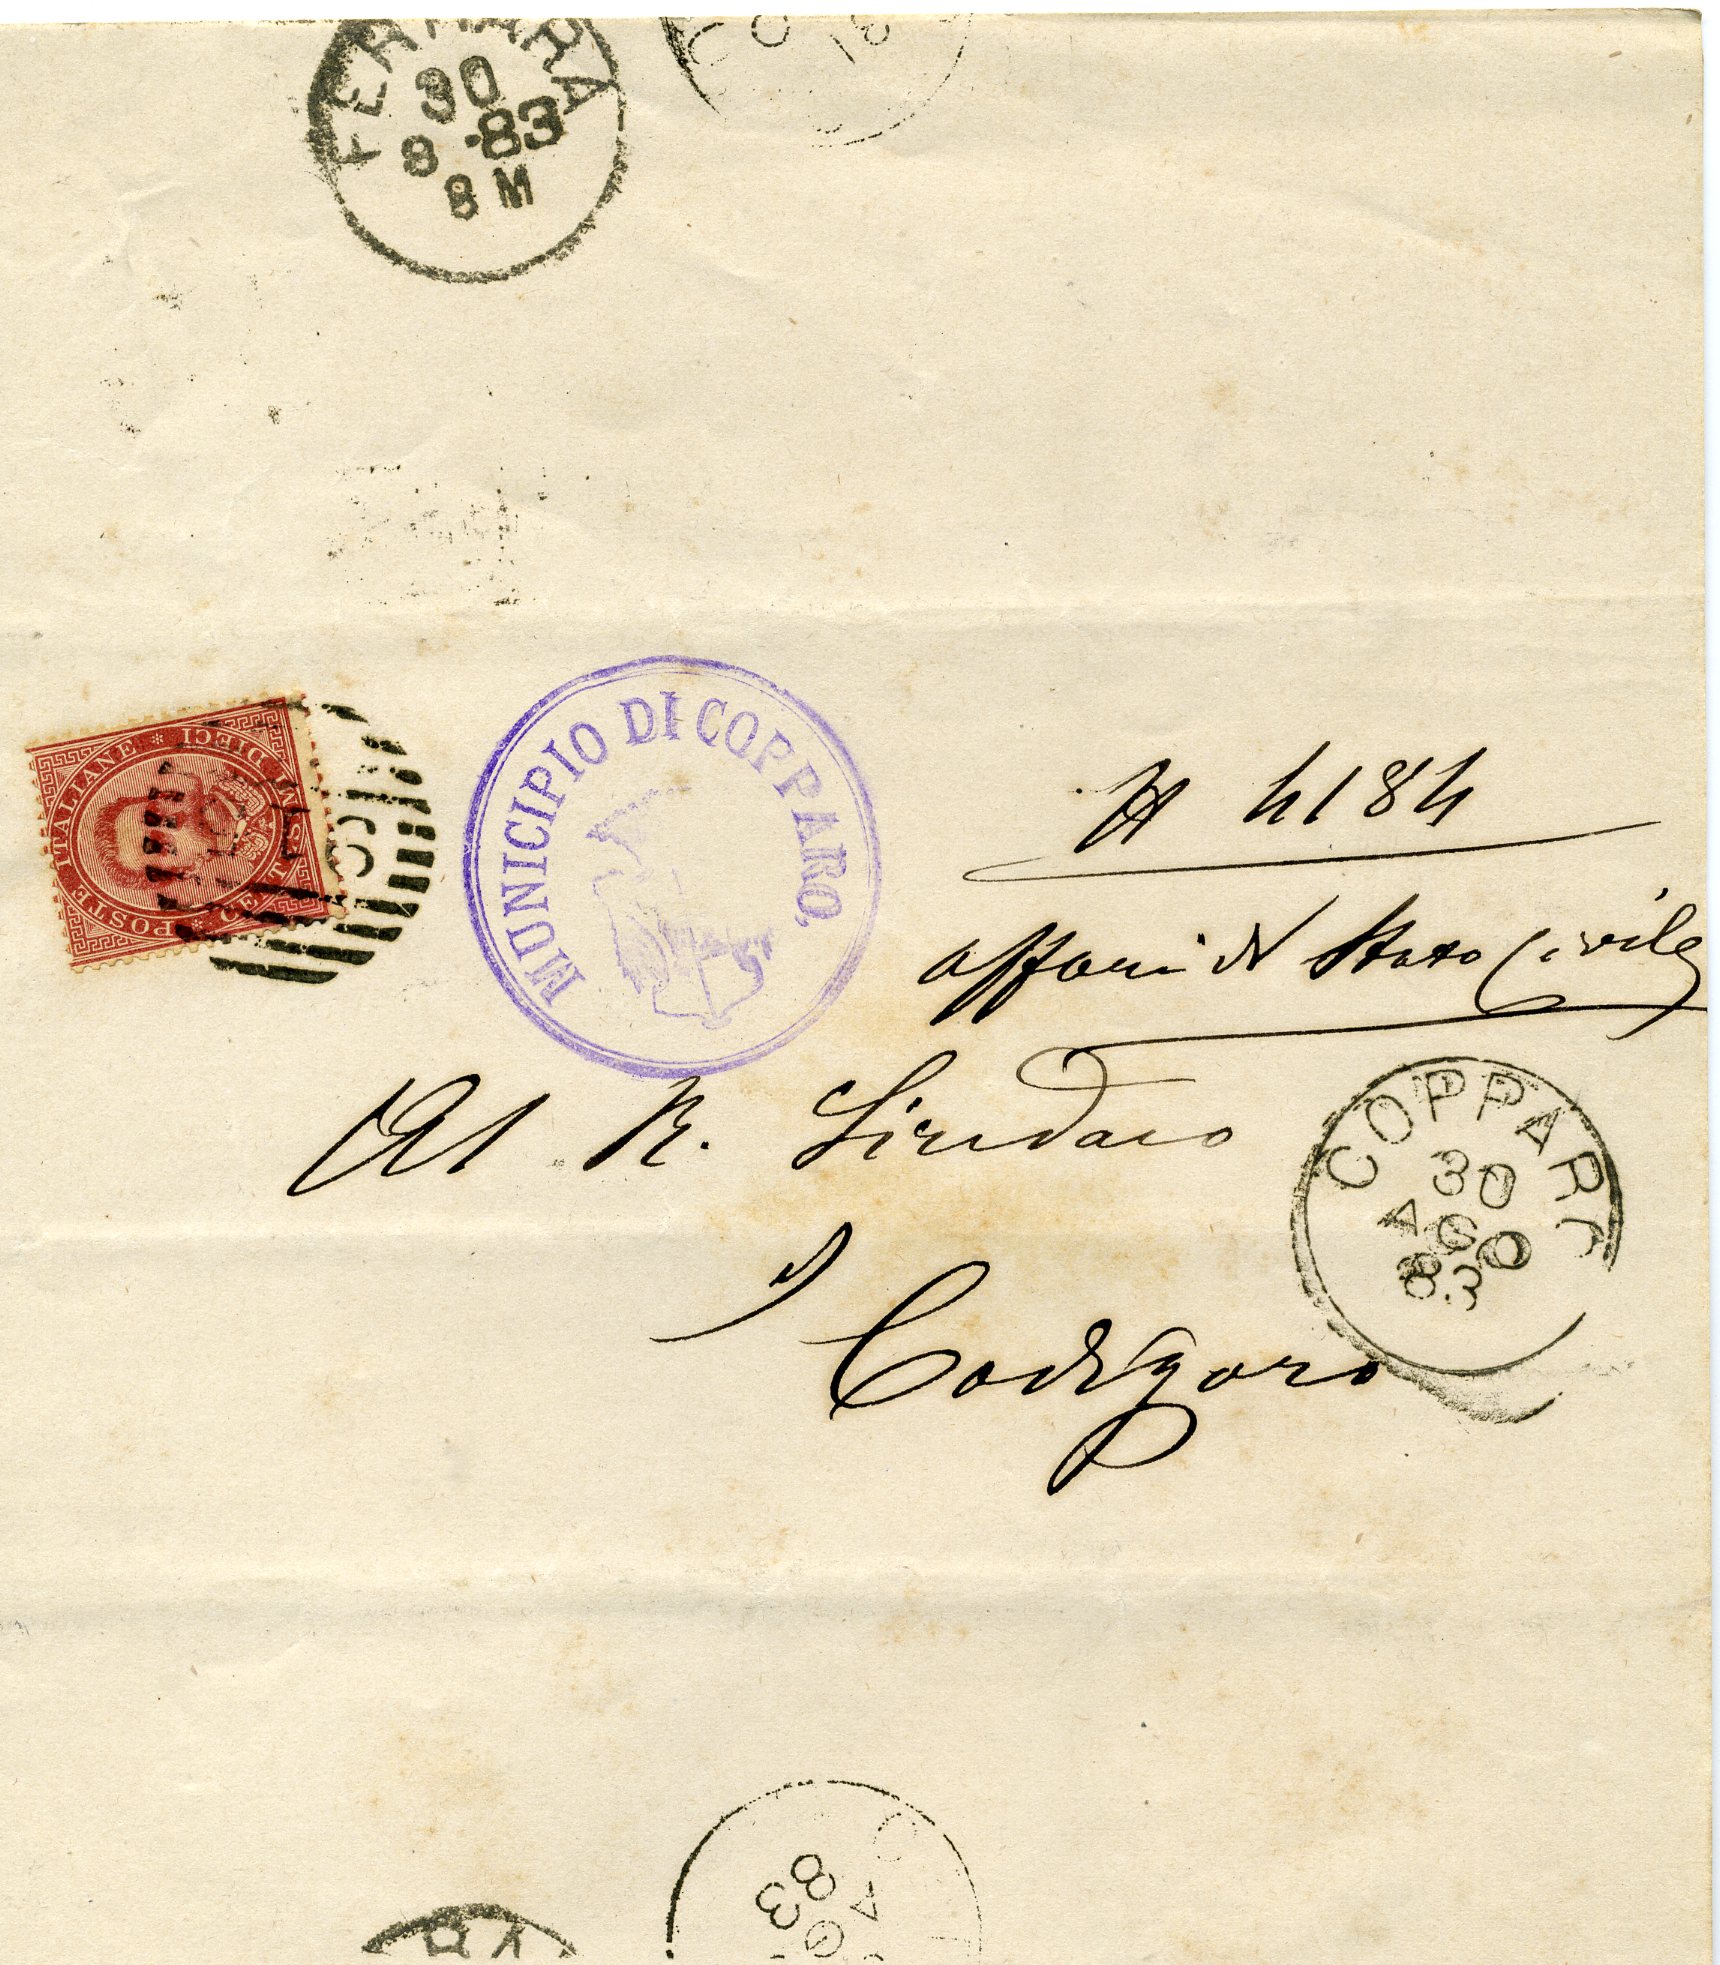 FERRARA
30
8 -83
8 M
MUNICIPIO DI COPPARO
POSTE ITALIANE * DIECI CENTESIMI *
N 4184
affari di Stato Civile
Al R. Sindaco
di
Codigoro
COPPARO
30
AGO
83
AG
83